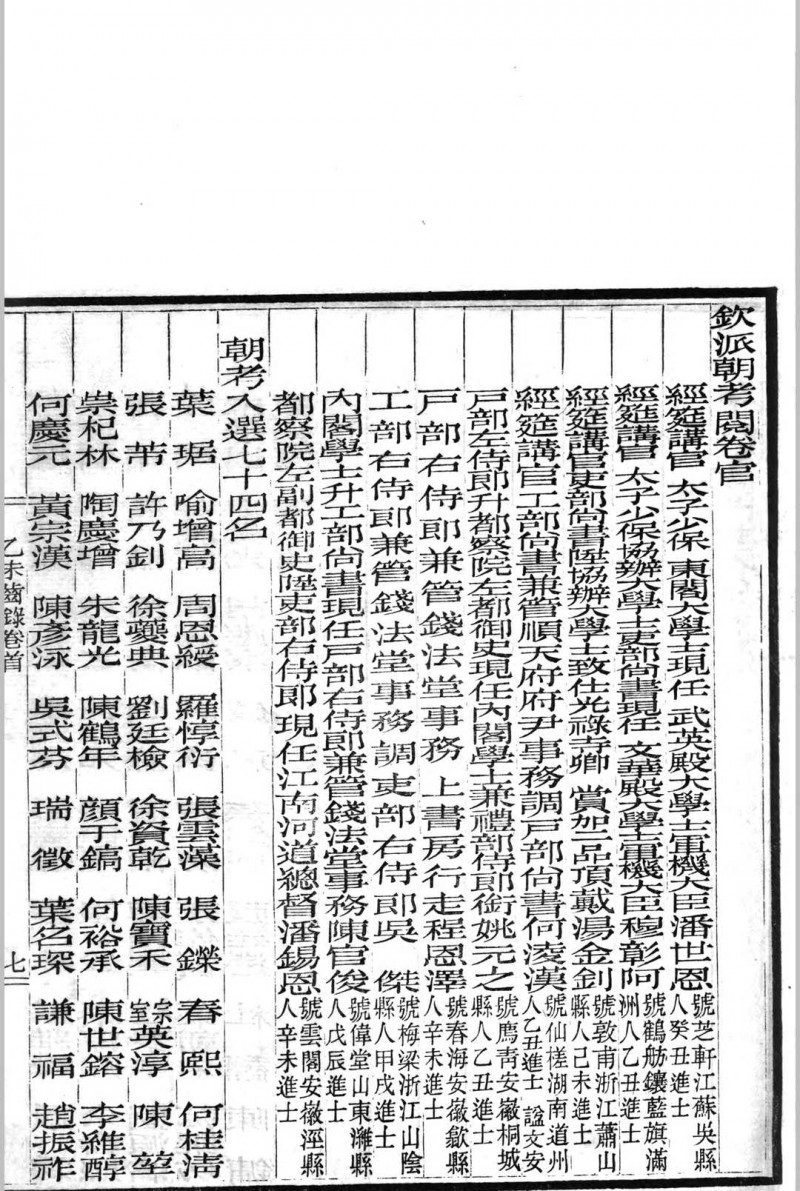 欽派朝考閱卷官
經筵講官 太子少保 東閣大學士現任 武英殿大學士軍機大臣潘世恩號芝軒江蘇吳縣人癸丑進士
經筵講官 太子少保協辦大學士吏部尚書現任 文華殿大學士軍機大臣穆彰阿號鶴舫鑲藍旗滿洲人乙丑進士
經筵講官吏部尚書陞協辦大學士致仕光祿寺卿 賞加二品頂戴湯金釗號敦甫浙江蕭山縣人己未進士
經筵講官工部尚書兼管順天府府尹事務調戶部尚書何淩漢號仙槎湖南道州人乙丑進士 諡文安
戶部左侍郎升都察院左都御史現任內閣學士兼禮部侍郎銜姚元之號廌青安徽桐城縣人乙丑進士
戶部右侍郎兼管錢法堂事務 上書房行走程恩澤號春海安徽歙縣人辛未進士
工部右侍郎兼管錢法堂事務調吏部右侍郎吳 傑號梅梁浙江山陰縣人甲戌進士
內閣學士升工部尚書現任戶部右侍郎兼管錢法堂事務陳官俊號偉堂山東濰縣人戊辰進士
都察院左副都御史陞吏部右侍郎現任江南河道總督潘錫恩號雲閣安徽涇縣人辛未進士
朝考入選七十四名
葉 琚 喻增高 周恩綬 羅惇衍 張雲藻 張 鑠 春 熙 何桂清
張 芾 許乃釗 徐夔典 劉廷檢 徐資乾 陳寶禾 宗室英淳 陳 堃
祟杞林 陶慶增 朱龍光 陳鶴年 顏于鎬 何裕承 陳世鎔 李維醇
何慶元 黃宗漢 陳彥泳 吳式芬 瑞 徵 葉名琛 謙 福 趙振祚
乙未齒錄卷首
七